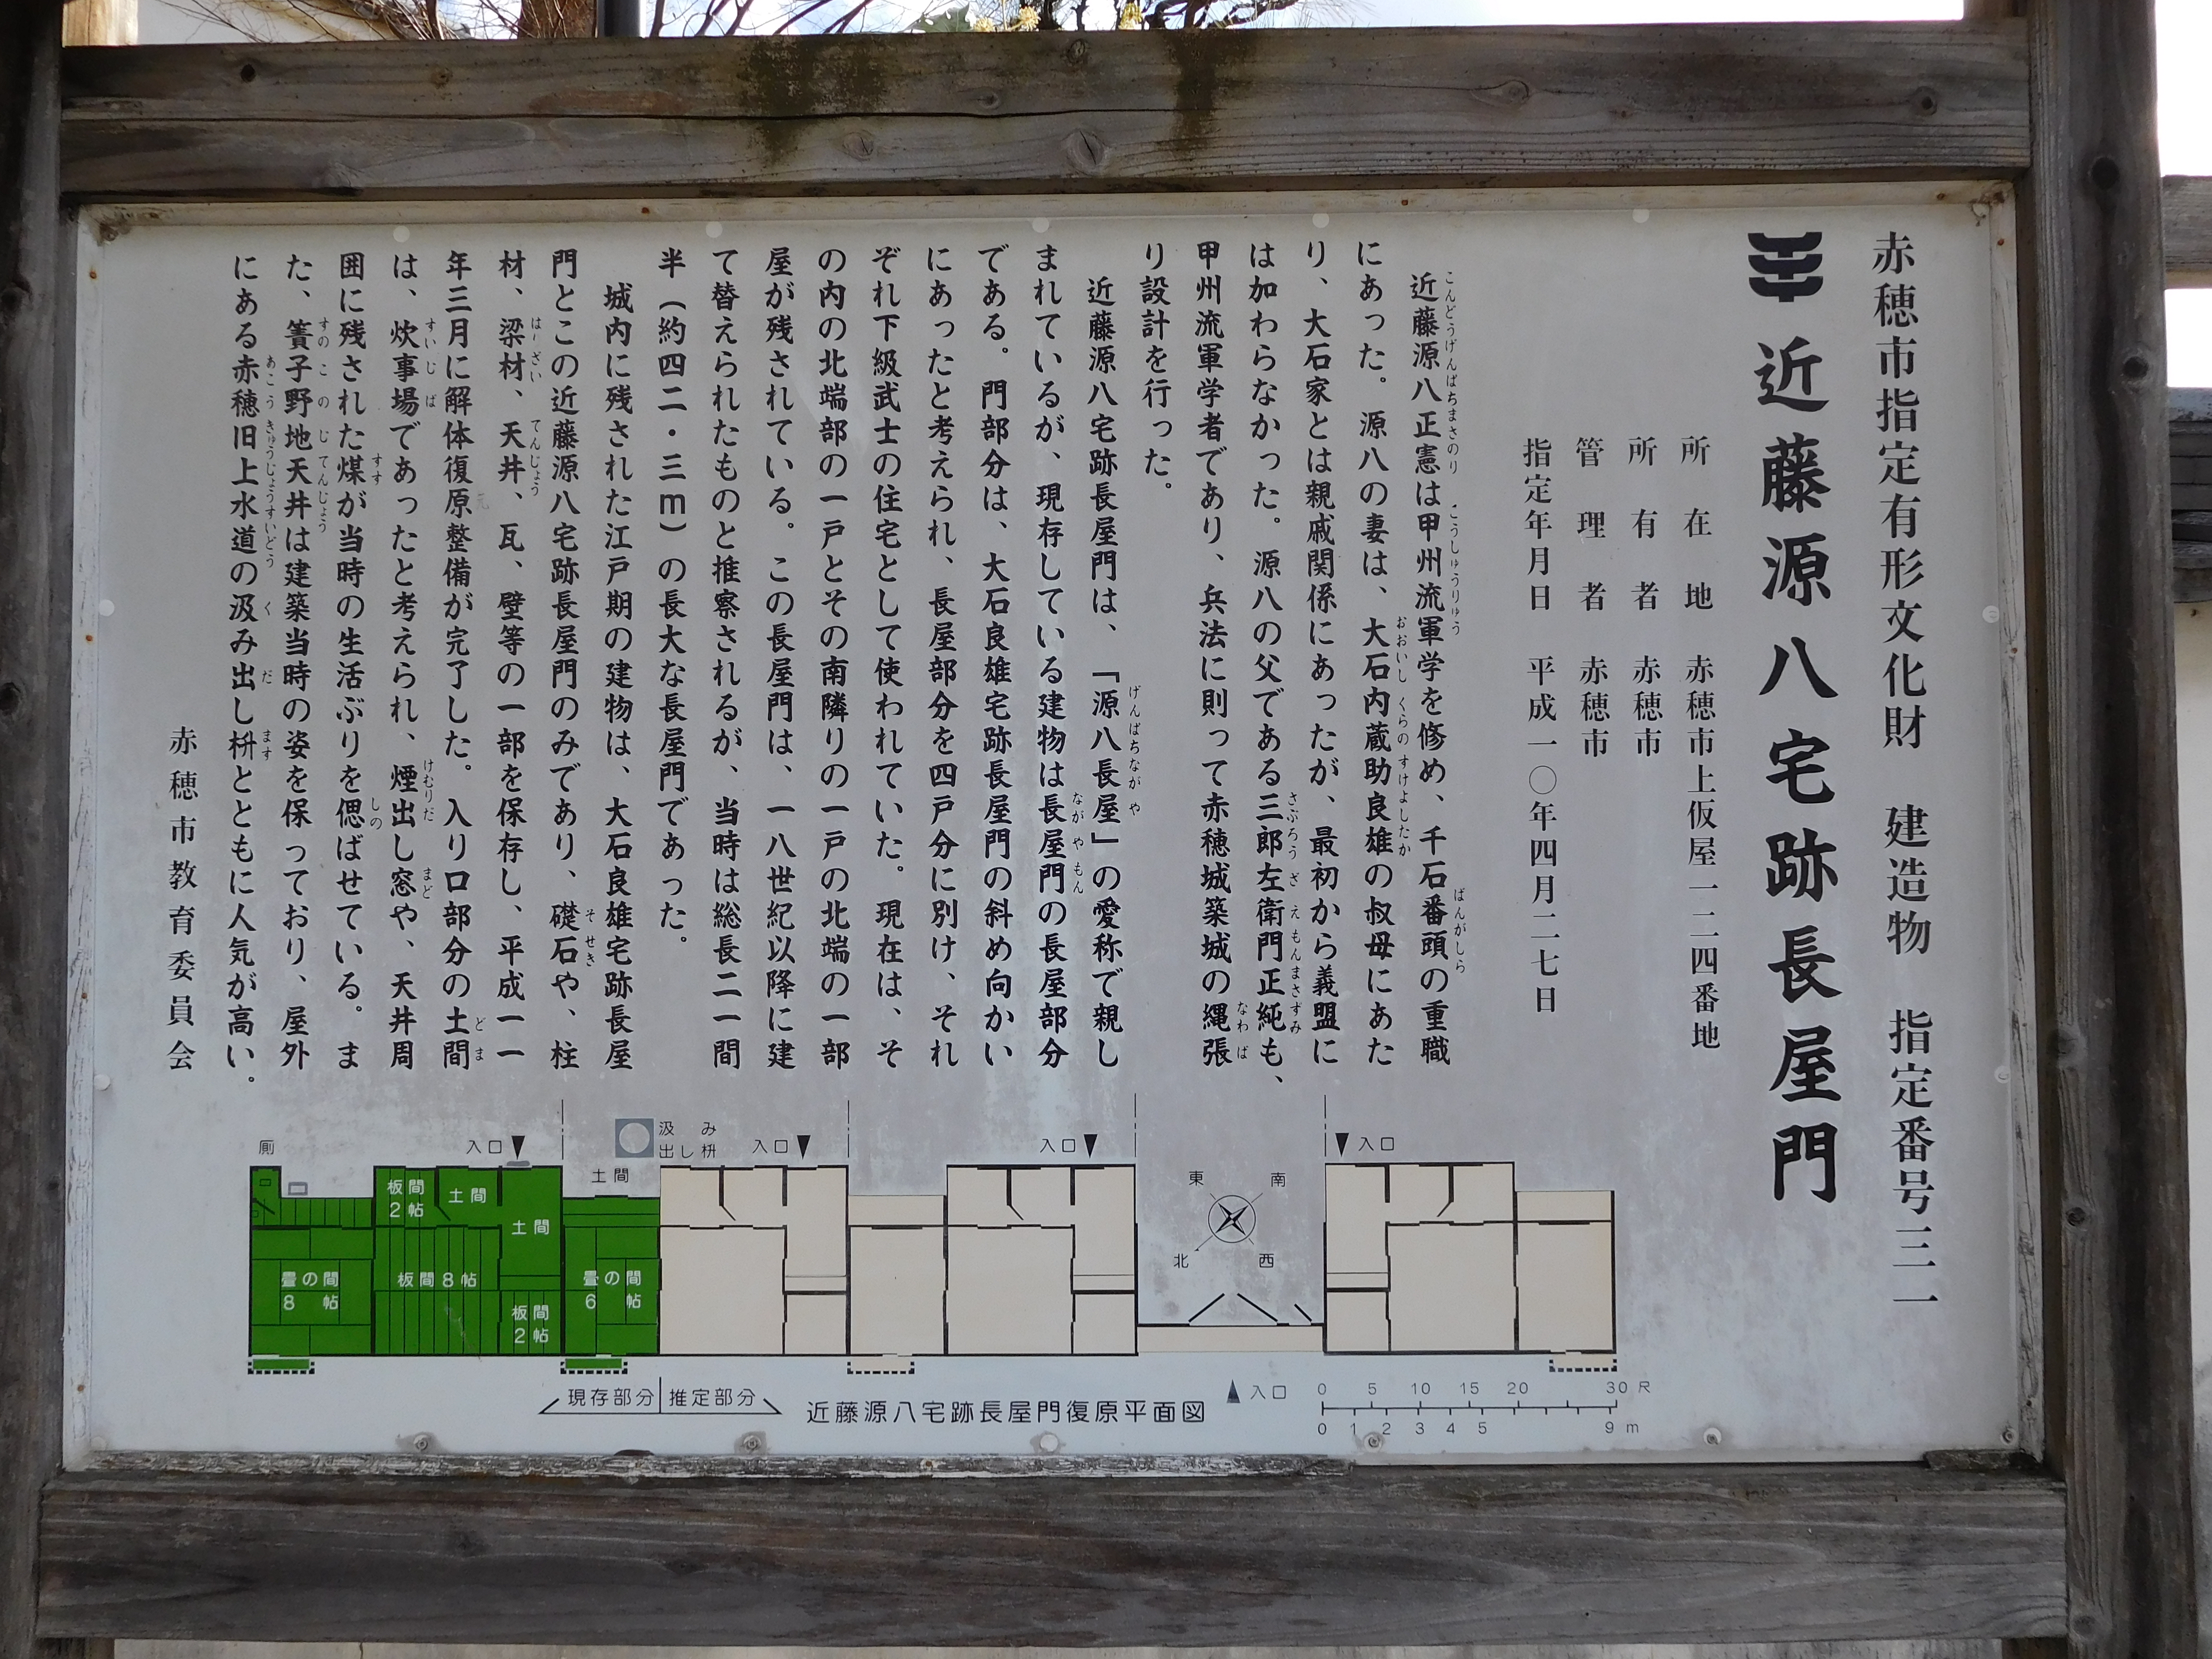 赤穂市指定有形文化財　建造物　指定番号三一
近藤源八宅跡長屋門
所在地　赤穂市上仮屋一二四番地
所有者　赤穂市
管理者　赤穂市
指定年月日　平成一〇年四月二七日
近藤源八正憲は甲州流軍学を修め、千石番頭の重職
にあった。源八の妻は、大石内蔵助良雄の叔母にあた
り、大石家とは親戚関係にあったが、最初から義盟に
は加わらなかった。源八の父である三郎左衛門正純も、
甲州流軍学者であり、兵法に則って赤穂城築城の縄張
り設計を行った。
近藤源八宅跡長屋門は、「源八長屋」の愛称で親し
まれているが、現存している建物は長屋門の長屋部分
である。門部分は、大石良雄宅跡長屋門の斜め向かい
にあったと考えられ、長屋部分を四戸分に別け、それ
ぞれ下級武士の住宅として使われていた。現在は、そ
の内の北端部の一戸とその南隣りの一戸の北端の一部
屋が残されている。この長屋門は、一八世紀以降に建
て替えられたものと推察されるが、当時は総長二一間
半（約四二・三ｍ）の長大な長屋門であった。
城内に残された江戸期の建物は、大石良雄宅跡長屋
門とこの近藤源八宅跡長屋門のみであり、礎石や、柱
材、梁材、天井、瓦、壁等の一部を保存し、平成一一
年三月に解体復原整備が完了した。入り口部分の土間
は、炊事場であったと考えられ、煙出し窓や、天井周
囲に残された煤が当時の生活ぶりを偲ばせている。ま
た、簀子野地天井は建築当時の姿を保っており、屋外
にある赤穂旧上水道の汲み出し枡とともに人気が高い。
赤穂市教育委員会
厠
入口
汲み
出し枡
入口
入口
入口
土間
板間
2帖
土間
土間
畳の間
8帖
板間8帖
板間
2帖
畳の間
6帖
東
南
北
西
現存部分
推定部分
近藤源八宅跡長屋門復原平面図
入口
0 5 10 15 20 30 尺
0 1 2 3 4 5 9 m